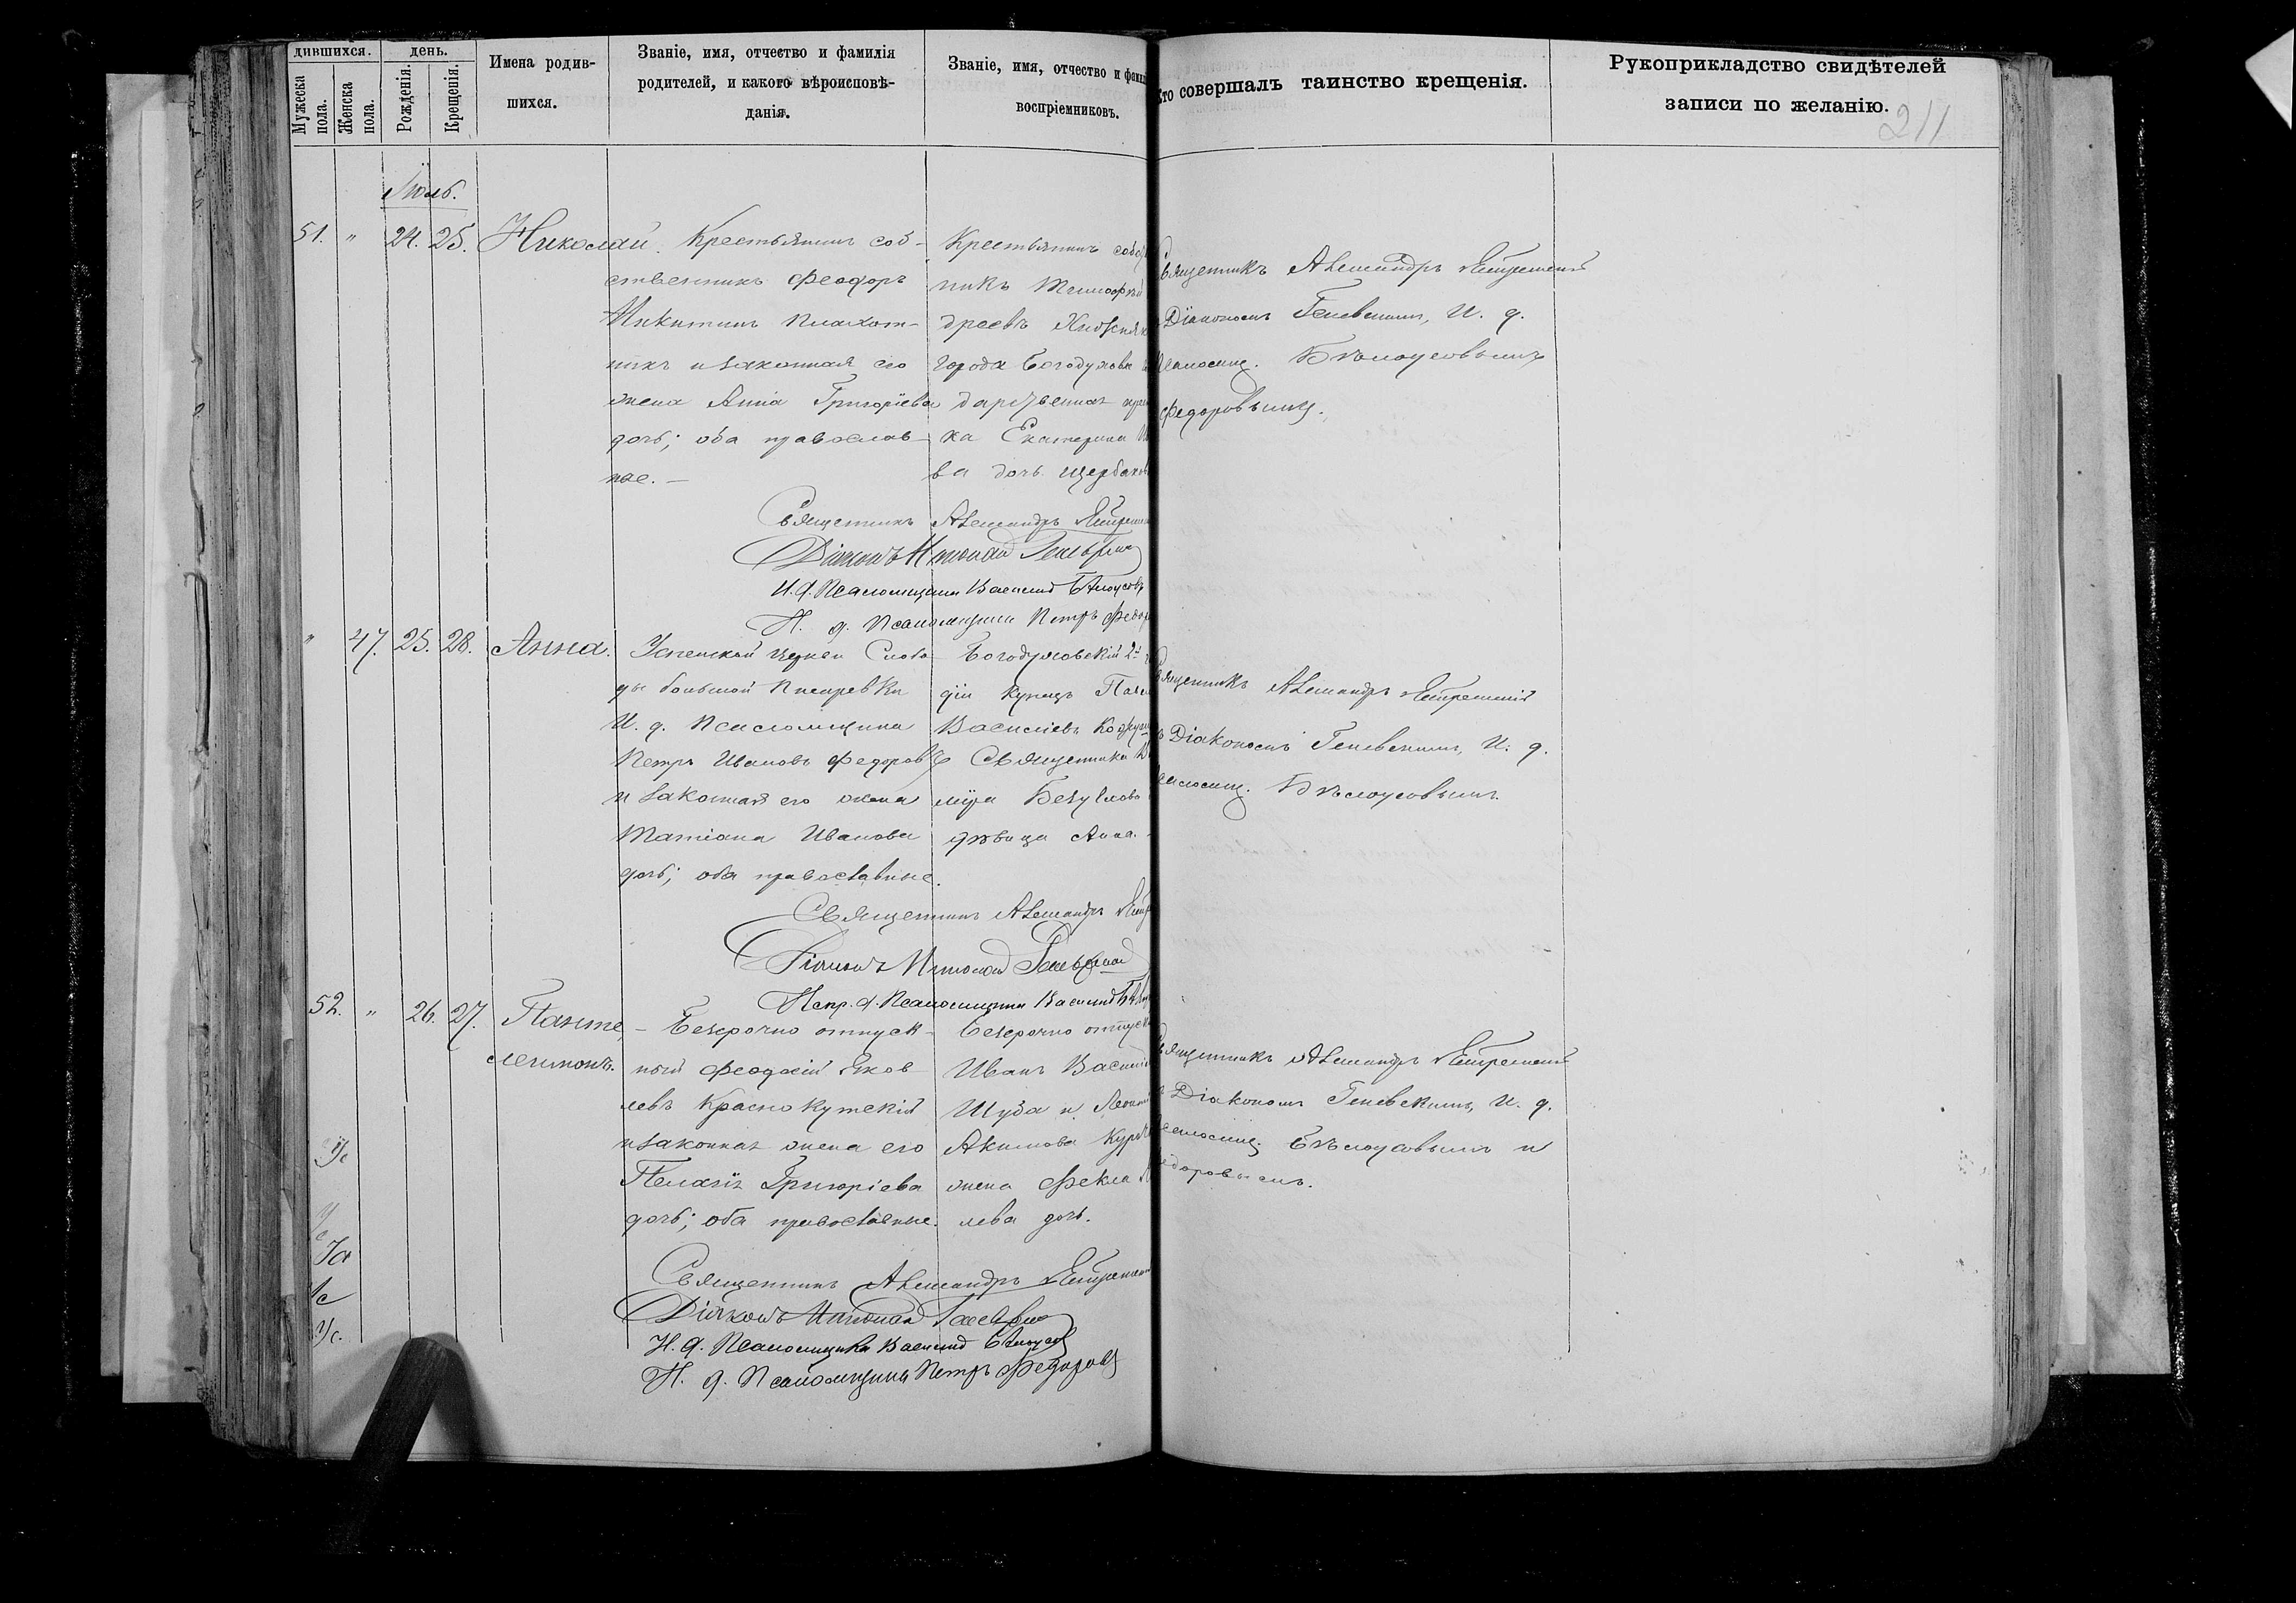 дившихся.
день.
Мужеска пола.
Женска пола.
Рожденія.
Крещенія.
Имена родив-
шихся.
Званіе, имя, отчество и фамилія
родителей, и какого вѣроисповѣ-
данія.
Званіе, имя, отчество и фами
воспріемниковъ.
Кто совершалъ таинство крещенія.
Рукоприкладство свидѣтелей
записи по желанію.
211
Іюль.
51. " 24. 25. Николай.
Крестьянинъ соб-
ственникъ Феодоръ
Никитинъ Плахот-
никъ и законная его
жена Анна Григоріева
дочь; оба православ-
ные. —
Крестьянинъ собс
никъ Тимофей
дреевъ
города Богодухова
ка Екатерина
ва дочь Щербаков
Священникъ Александръ
Діакономъ Геневскимъ, И. д.
Псаломщ. Бѣлоусовымъ
Федоровымъ.
Священникъ Александръ
Діаконъ Николай
И. д. Псаломщика Василий Бѣлоусовъ
И. д. Псаломщика Петръ Федор
" 47. 25. 28. Анна.
Успенской церкви Слобо-
ды большой Писаревки
И. д. Псаломщика
Петръ Ивановъ Федоровъ
и законная его жена
Татіана Иванова
дочь; оба православные.
Богодуховскій 2й
діи купецъ Павел
Василіевъ
Священника
міра Безуглова
дѣвица Анна.
Священникъ Александръ
Діакономъ Геневскимъ, И. д.
Псаломщ. Бѣлоусовымъ.
Священникъ Александръ
Діаконъ Николай
Испр. д. Псаломщика Василий
52. " 26. 27. Панте-
леимонъ.
Безсрочно отпуск-
ной Феодосій Яков-
левъ Краснокутскій
и законная жена его
Пелагія Григоріева
дочь; оба православные.
Безсрочно отпуск
Иванъ Васил
Шуба и
Акимова
жена Фекла
лева дочь.
Священникъ Александръ
Діакономъ Геневскимъ, И. д.
Псаломщ. Бѣлоусовымъ и
Федоровымъ.
Священникъ Александръ
Діаконъ Николай
И. д. Псаломщика Василий Бѣлоусовъ
И. д. Псаломщика Петръ Федоровъ